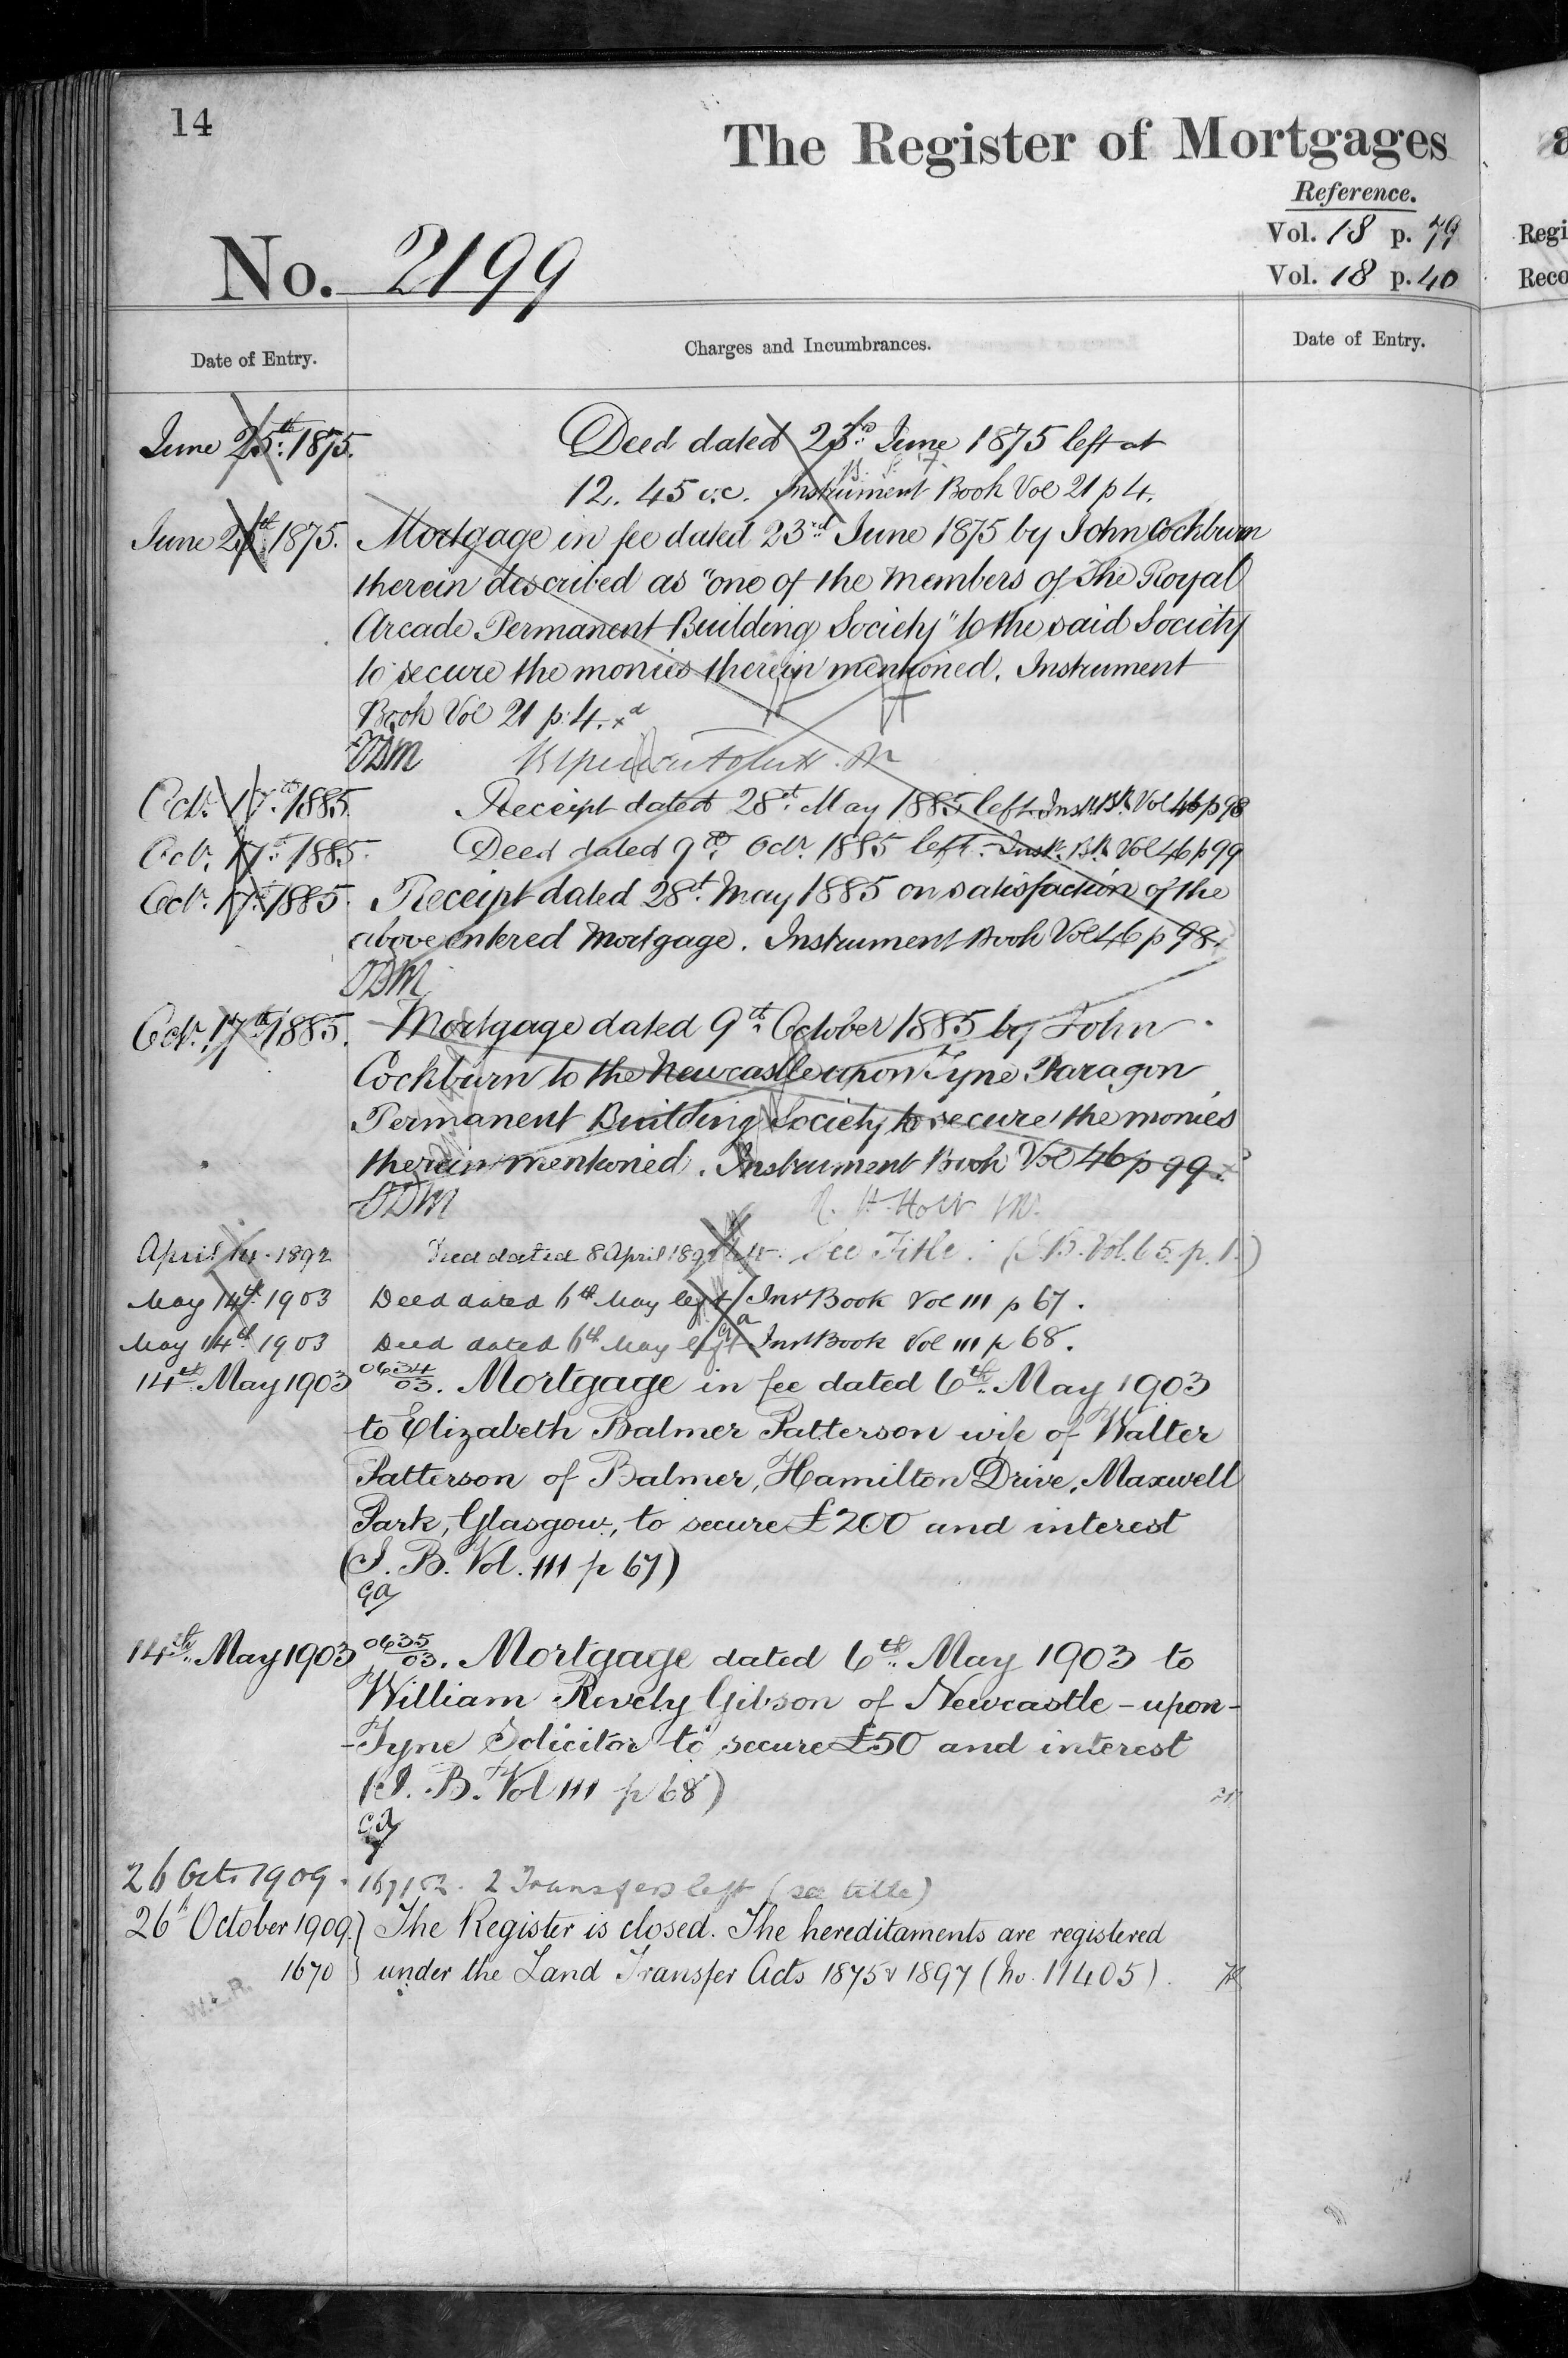 14
The Register of Mortgages
Reference.
Vol. 18 p. 79
No. 2199
Vol. 18 p. 40
Regi
Reco
Date of Entry.
Charges and Incumbrances.
Date of Entry.
June 25th 1875. Deed dated 23rd June 1875 left at
12. 45 o.c. Instrument Book Vol 21 p 4.
June 1875. Mortgage in fee dated 23rd June 1875 by John Cockburn
therein described as "one of the Members of The Royal
Arcade Permanent Building Society" to the said Society
to secure the monies therein mentioned. Instrument
Book Vol 21 p. 4.
ODM
Oct. 17th 1885. Receipt dated 28th May 1885 left. Inst. Bk. Vol 46 p 98
Oct. 17th 1885. Deed dated 9th Octr. 1885 left. Inst. Bk. Vol 46 p 99
Oct. 17th 1885. Receipt dated 28th May 1885 on satisfaction of the
above entered Mortgage. Instrument Book Vol 46 p 98.
ODM
Oct. 17th 1885. Mortgage dated 9th October 1885 by John
Cockburn to the Newcastle upon Tyne Paragon
Permanent Building Society to secure the monies
therein mentioned. Instrument Book Vol 46 p 99.
ODM
April 14. 1892 Deed dated 8 April 1892 left. See Title. (I.B. Vol. 65. p. 1.)
May 14th 1903 Deed dated 6th May left Inst Book Vol 111 p 67.
May 14th 1903 Deed dated 6th May left Inst Book Vol 111 p 68.
14th May 1903 0634/03. Mortgage in fee dated 6th May 1903
to Elizabeth Balmer Patterson wife of Walter
Patterson of Balmer, Hamilton Drive, Maxwell
Park, Glasgow, to secure £200 and interest
(I. B. Vol. 111 p 67)
ca
14th May 1903 0635/03. Mortgage dated 6th May 1903 to
William Revely Gibson of Newcastle-upon-
-Tyne Solicitor to secure £50 and interest
(I. B. Vol 111 p 68)
ca
26 Oct. 1909. 2 Transfers left (see title)
26th October 1909} The Register is closed. The hereditaments are registered
1670 } under the Land Transfer Acts 1875 & 1897 (No. 11405).